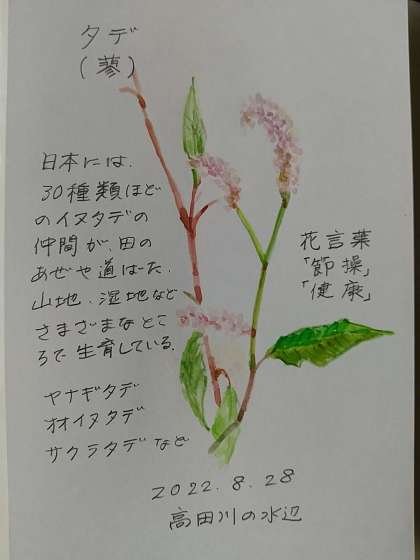 タデ
(蓼)
日本には、
30種類ほど
のイヌタデの
仲間が、田の
あぜや道ばた、
山地、湿地など
さまざまなとこ
ろで生育している。
ヤナギタデ
オオイヌタデ
サクラタデなど
花言葉
「節操」
「健康」
2022.8.28
高田川の水辺